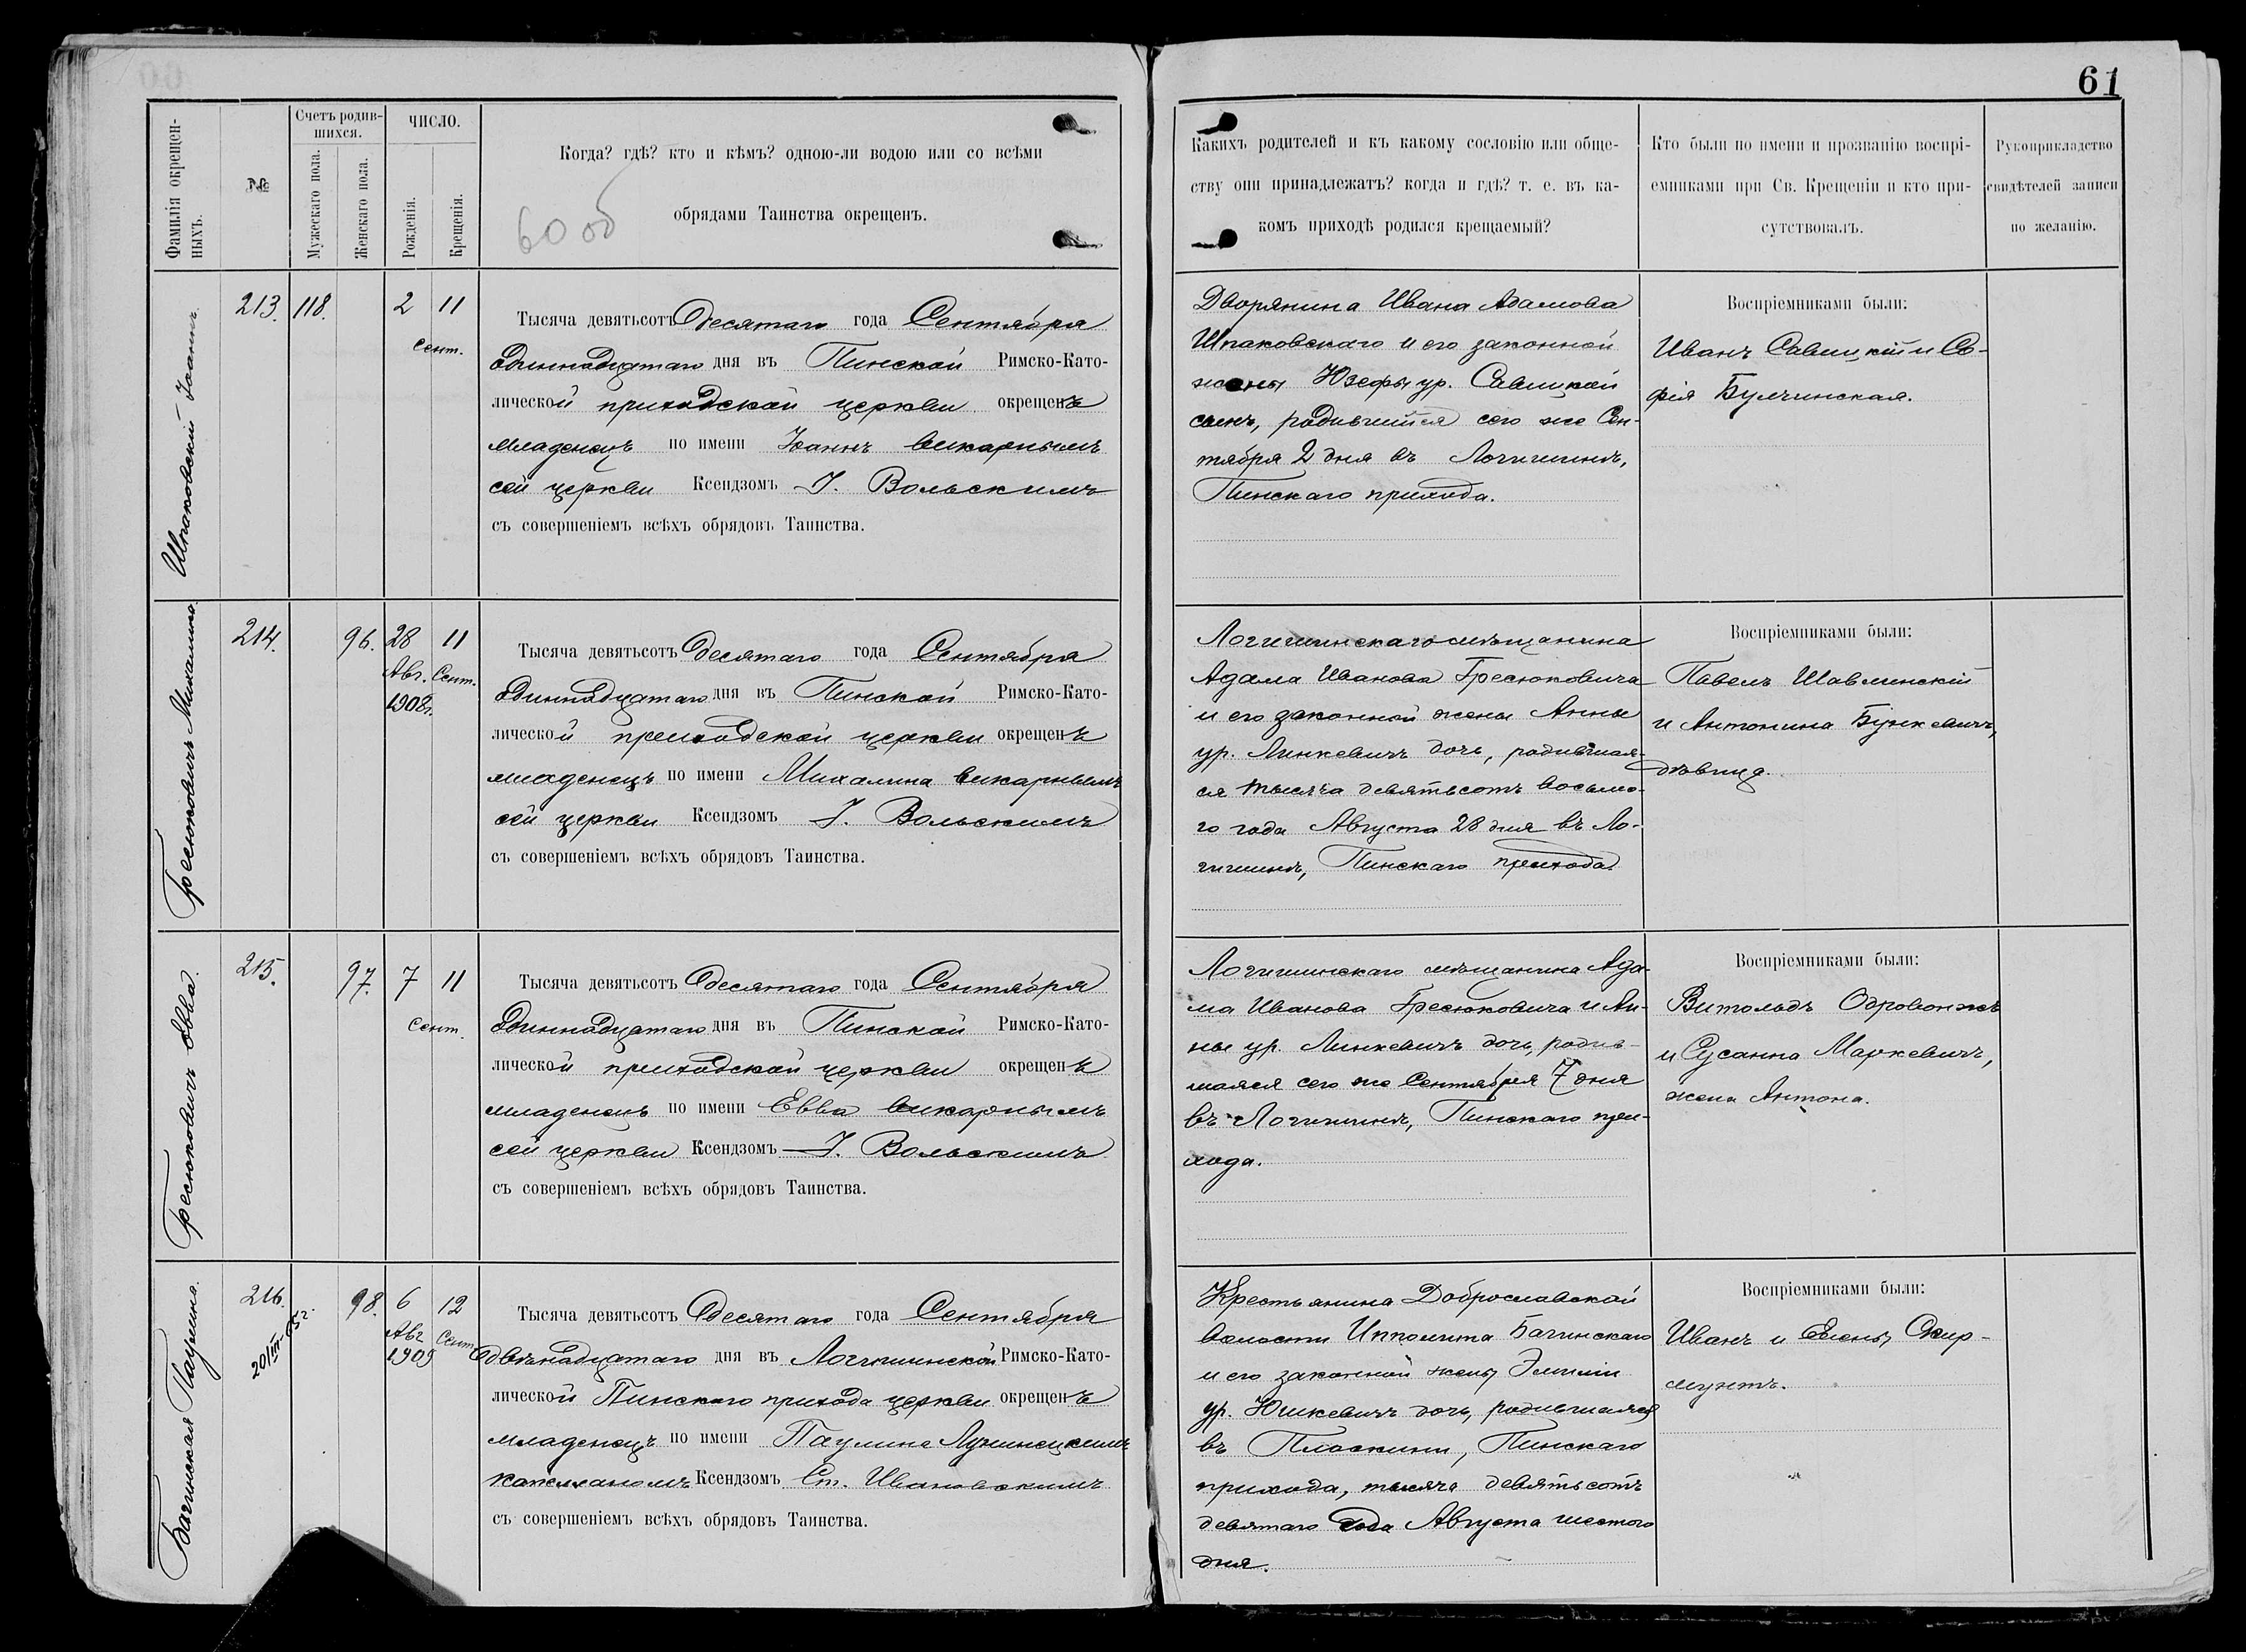 61
Фамилія окрещен-
ныхъ.
№
Счетъ родив-
шихся.
Мужескаго пола.
Женскаго пола.
ЧИСЛО.
Рожденія.
Крещенія.
Когда? гдѣ? кто и кѣмъ? одною-ли водою или со всѣми
обрядами Таинства окрещенъ.
60 об
Какихъ родителей и къ какому сословію или обще-
ству они принадлежатъ? когда и гдѣ? т. е. въ ка-
комъ приходѣ родился крещаемый?
Кто были по имени и прозванію воспрі-
емниками при Св. Крещеніи и кто при-
сутствовалъ.
Рукоприкладство
свидѣтелей записи
по желанію.
Шпаковскій Іоаннъ.
213. 118. 2 11
Сент.
Тысяча девятьсотъ десятаго года Сентября
одиннадцатаго дня въ Пинской Римско-Като-
лической приходской церкви окрещенъ
младенецъ по имени Іоаннъ викарнымъ
сей церкви Ксендзомъ І. Вольскимъ
съ совершеніемъ всѣхъ обрядовъ Таинства.
Дворянина Ивана Адамова
Шпаковскаго и его законной
жены Юзефы ур. Савицкой
сынъ, родившійся сего же Сен-
тября 2 дня въ Логишинѣ,
Пинскаго прихода.
Воспріемниками были:
Иванъ Савицкій и Со-
фія Булчинская.
Гресюковичъ Михалина.
214. 96. 28 11
Авг. Сент.
1908г.
Тысяча девятьсотъ десятаго года Сентября
одиннадцатаго дня въ Пинской Римско-Като-
лической приходской церкви окрещенъ
младенецъ по имени Михалина викарнымъ
сей церкви Ксендзомъ І. Вольскимъ
съ совершеніемъ всѣхъ обрядовъ Таинства.
Логишинскаго мѣщанина
Адама Иванова Гресюковича
и его законной жены Анны
ур. Линкевичъ дочь, родившая-
ся тысяча девятьсотъ восьмо-
го года Августа 28 дня въ Ло-
гишинѣ, Пинскаго прихода.
Воспріемниками были:
Павелъ Шавлинскій
и Антонина Бункевичъ,
дѣвица.
Гресюковичъ Евва.
215. 97. 7 11
Сент.
Тысяча девятьсотъ десятаго года Сентября
одиннадцатаго дня въ Пинской Римско-Като-
лической приходской церкви окрещенъ
младенецъ по имени Евва викарнымъ
сей церкви Ксендзомъ І. Вольскимъ
съ совершеніемъ всѣхъ обрядовъ Таинства.
Логишинскаго мѣщанина Ада-
ма Иванова Гресюковича и Ан-
ны ур. Линкевичъ дочь, родив-
шаяся сего же Сентября 7 дня
въ Логишинѣ, Пинскаго при-
хода.
Воспріемниками были:
Витольдъ Одровонжъ
и Сусанна Маркевичъ,
жена Антона.
Багинская Паулина.
216. 98. 6 12
Авг Сент
1909
Тысяча девятьсотъ десятаго года Сентября
двѣнадцатаго дня въ Логишинской Римско-Като-
лической Пинскаго прихода церкви окрещенъ
младенецъ по имени Паулина Лунинецкимъ
капелланомъ Ксендзомъ Ст. Ивановскимъ
съ совершеніемъ всѣхъ обрядовъ Таинства.
Крестьянина Доброславской
волости Ипполита Багинскаго
и его законной жены Эмиліи
ур. Юшкевичъ дочь, родившаяся
въ Плоскини, Пинскаго
прихода, тысяча девятьсотъ
девятаго года Августа шестого
дня.
Воспріемниками были:
Иванъ и Елена Скир-
мунтъ.